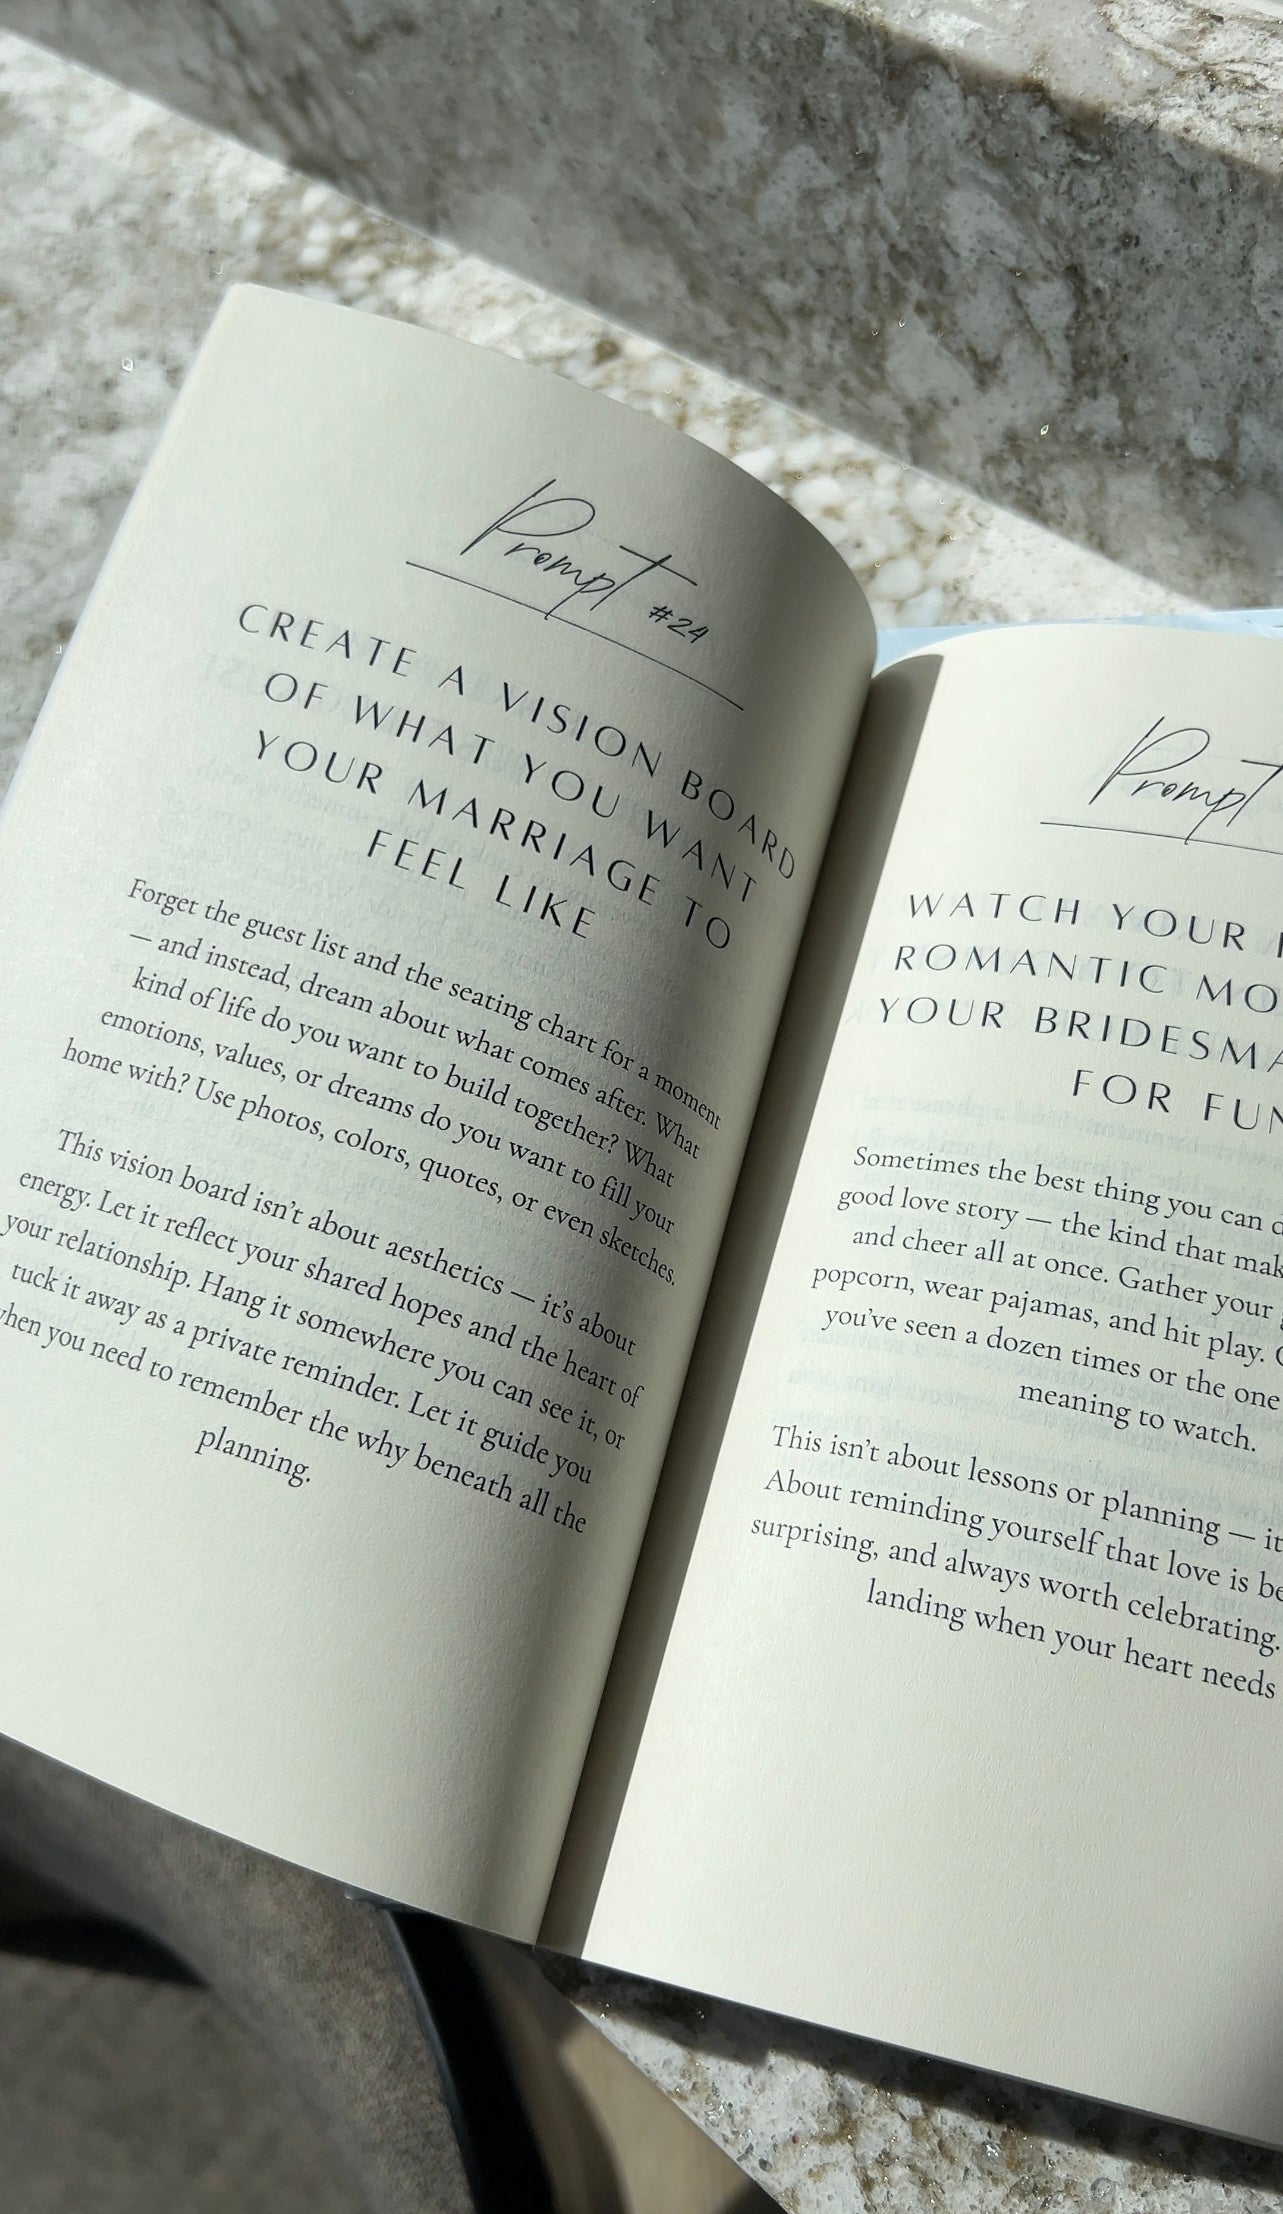 Prompt #24
CREATE A VISION BOARD
OF WHAT YOU WANT
YOUR MARRIAGE TO
FEEL LIKE
Forget the guest list and the seating chart for a moment
— and instead, dream about what comes after. What
kind of life do you want to build together? What
emotions, values, or dreams do you want to fill your
home with? Use photos, colors, quotes, or even sketches.
This vision board isn’t about aesthetics — it’s about
energy. Let it reflect your shared hopes and the heart of
your relationship. Hang it somewhere you can see it, or
tuck it away as a private reminder. Let it guide you
when you need to remember the why beneath all the
planning.
Prompt
WATCH YOUR
ROMANTIC MO
YOUR BRIDESMA
FOR FUN
Sometimes the best thing you can d
good love story — the kind that mak
and cheer all at once. Gather your
popcorn, wear pajamas, and hit play.
you’ve seen a dozen times or the one
meaning to watch.
This isn’t about lessons or planning — it
About reminding yourself that love is be
surprising, and always worth celebrating.
landing when your heart needs